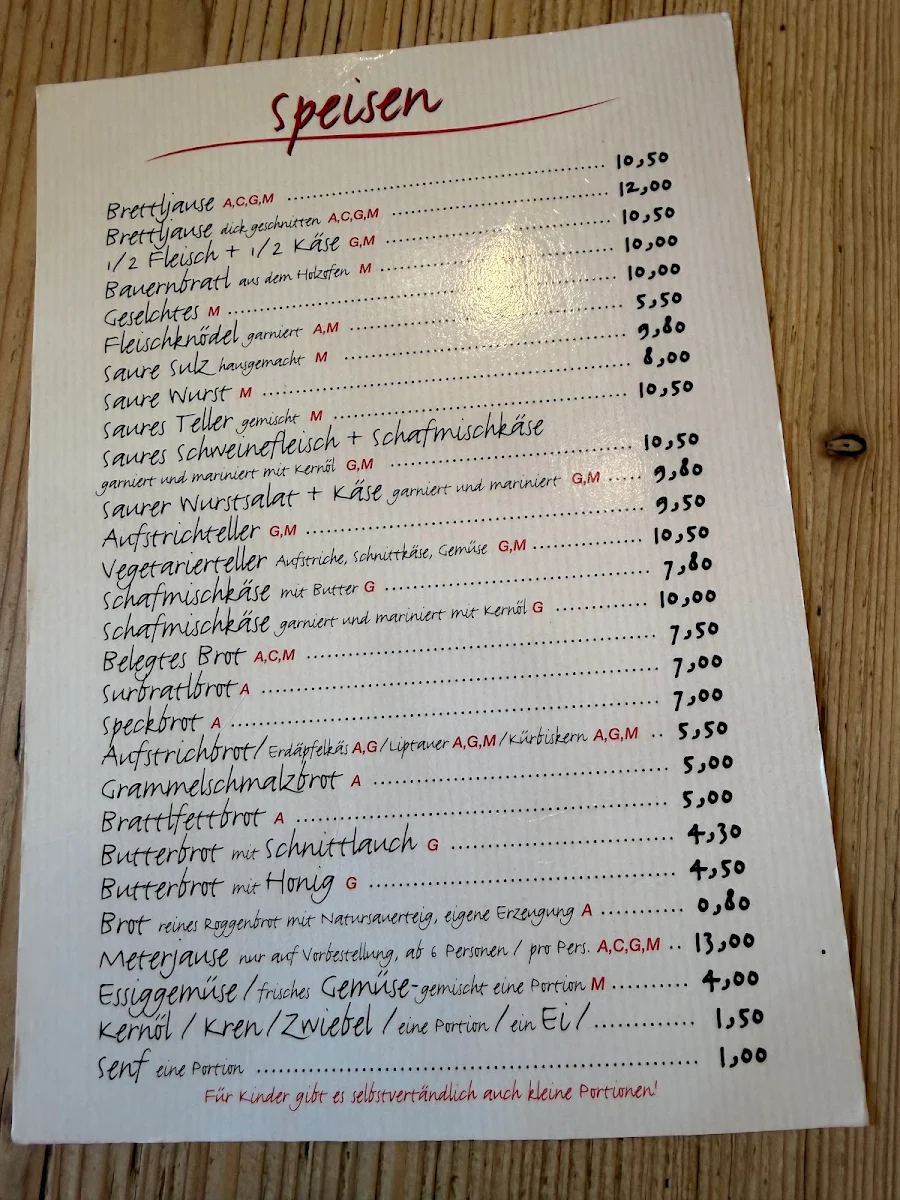 Speisen
Brettljause A,C,G,M ........ 10,50
Brettljause dick geschnitten A,C,G,M ........ 12,00
1/2 Fleisch + 1/2 Käse G,M ........ 10,50
Bauernbratl aus dem Holzofen M ........ 10,00
Geselchtes M ........ 10,00
Fleischknödel garniert A,M ........ 5,50
Saure Sulz hausgemacht M ........ 9,80
Saure Wurst M ........ 8,00
Saures Teller gemischt M ........ 10,50
Saures Schweinefleisch + Schafmischkäse
garniert und mariniert mit Kernöl G,M ........ 10,50
Saurer Wurstsalat + Käse garniert und mariniert G,M ..... 9,80
Aufstrichteller G,M ........ 9,50
Vegetarierteller Aufstriche, Schnittkäse, Gemüse G,M ........ 10,50
Schafmischkäse mit Butter G ........ 7,80
Schafmischkäse garniert und mariniert mit Kernöl G ........ 10,00
Belegtes Brot A,C,M ........ 7,50
Surbratlbrot A ........ 7,00
Speckbrot A ........ 7,00
Aufstrichbrot/ Erdäpfelkäs A,G / Liptauer A,G,M / Kürbiskern A,G,M .. 5,50
Grammelschmalzbrot A ........ 5,00
Brattlfettbrot A ........ 5,00
Butterbrot mit Schnittlauch G ........ 4,30
Butterbrot mit Honig G ........ 4,50
Brot reines Roggenbrot mit Natursauerteig, eigene Erzeugung A ........ 0,80
Meterjause nur auf Vorbestellung, ab 6 Personen / pro Pers. A,C,G,M .. 13,00
Essiggemüse / frisches Gemüse-gemischt eine Portion M ........ 4,00
Kernöl / Kren / Zwiebel / eine Portion / ein Ei / ........ 1,50
Senf eine Portion ........ 1,00
Für Kinder gibt es selbstvertändlich auch kleine Portionen!